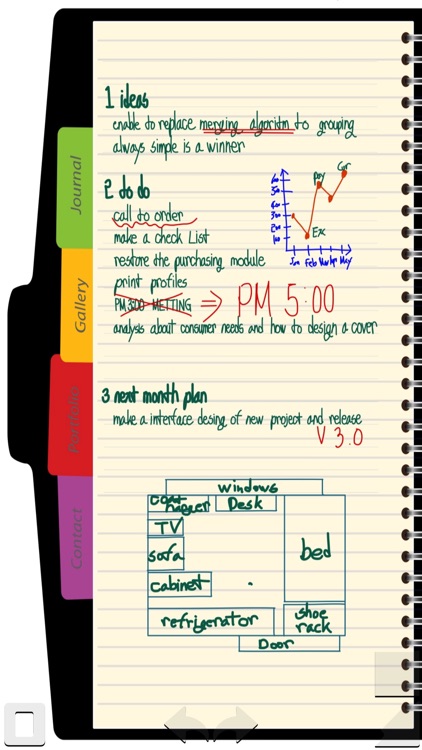 Journal
Gallery
Portfolio
Contact
1 ideas
enable to replace merging algoritm to grouping
always simple is a winner
2 do do
call to order
make a check List
restore the purchasing module
print profiles
PM 3:00 METTING ⇒ PM 5:00
analysis about consumer needs and how to design a cover
Ex
Jan Feb Mar Apr May
3 next month plan
make a interface desing of new project and release
V 3.0
windows
Desk
TV
sofa
bed
cabinet
refrigerator
shoe
rack
Door